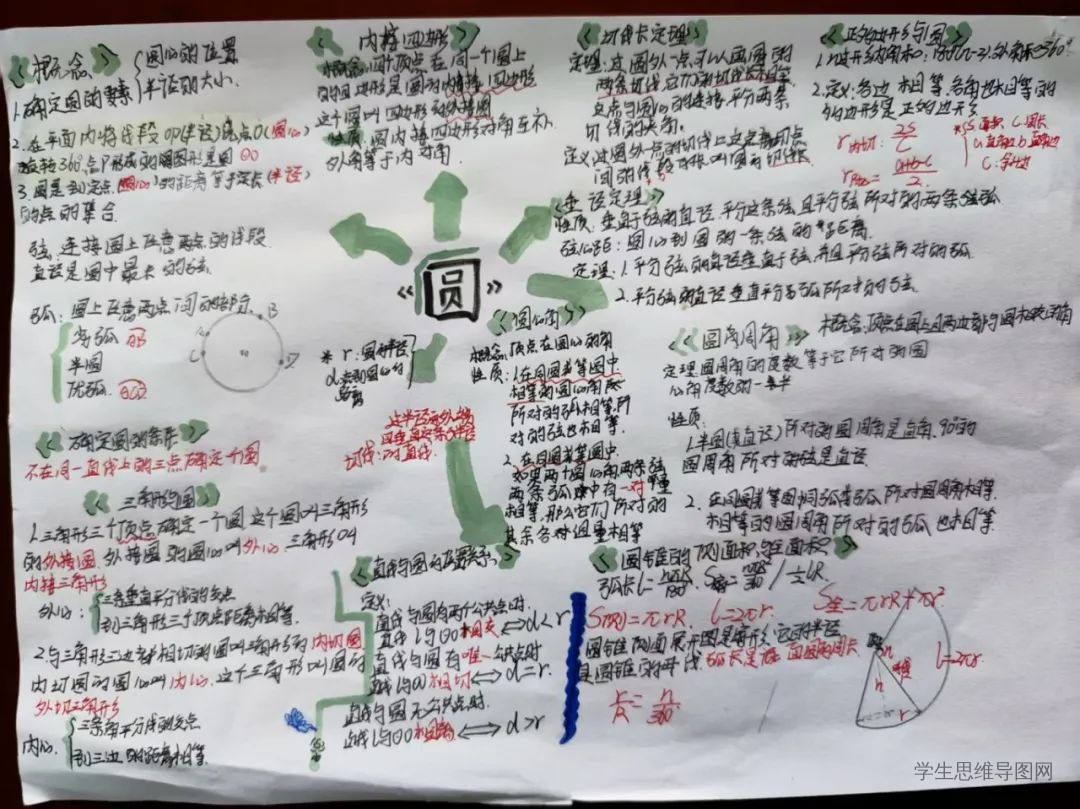 《概念》
圆心的位置
1.确定圆的要素
半径的大小.
2.在平面内将线段OP(半径)绕点O(圆心)
旋转360°,点P形成的图形是圆 ⊙O
3.圆是到定点(圆心)的距离等于定长(半径)
的点的集合.
弦:连接圆上任意两点的线段
直径是圆中最长的弦.
弧:圆上任意两点间的部分.
劣弧
半圆
优弧
B
C
D
《确定圆的条件》
不在同一直线上的三点确定一个圆
《三角形与圆》
1.三角形三个顶点确定一个圆,这个圆叫三角形
的外接圆.外接圆的圆心叫外心 三角形叫
内接三角形
外心:
三条垂直平分线的交点
到三角形三个顶点距离相等.
2.与三角形三边都相切的圆叫三角形的内切圆
内切圆的圆心叫内心.这个三角形叫圆的
外切三角形
内心.
三条角平分线的交点
到三边的距离相等.
《内接四边形》
概念:四个顶点在同一个圆上
的四边形是圆的内接四边形
这个圆叫四边形的外接圆
性质:圆内接四边形对角互补.
外角等于内对角.
《切线长定理》
定理:过圆外一点,可以画圆的
两条切线,它们的切线长相等.
这点与圆心的连接,平分两条
切线的夹角.
定义:过圆外一点的切线上这点与切点
间的线段的长叫圆的切线长
《正多边形与圆》
2.定义:各边相等,各角也相等的
多边形是正多边形.
r内切: 2S/C
a+b-c/2
C:周长
c:斜边
《圆》
《垂径定理》
性质:垂直于弦的直径,平分这条弦,且平分弦所对的两条弧
弦心距:圆心到圆的一条弦的距离.
定理:1.平分弦的直径垂直于弦,并且平分弦所对的弧
* r:圆的半径
切线:的直线.
《圆心角》
概念:顶点在圆心的角
性质:1.在同圆或等圆中
相等的圆心角所
对的弧相等,所
对的弦也相等.
2.在同圆或等圆中.
如果两个圆心角,两条弦
两条弧中有一对量
相等,那么它们所对的
其余各对组量相等
《圆周角》
定理:圆周角的度数等于它所对的圆
心角度数的一半
性质:
1.半圆(或直径)所对的圆周角是直角.90°的
圆周角所对的弦是直径.
2.在同圆或等圆中,同弧或等弧所对圆周角相等.
相等的圆周角所对的弧也相等.
《直线与圆的位置关系》
定义:
直线与圆有两个公共点时.
直线l与⊙O相交⟺d<r
直线与圆有唯一公共点时
直线l与⊙O相切⟺d=r.
直线与圆无公共点时.
直线l与⊙O相离⟺d>r
《圆锥的侧面积,全面积》
S侧=πrR. l=2πr. S全=πrR+πr²
圆锥侧面展开图是扇形,它的半径
是圆锥的母线
r/R=n/360
l=2πr.
h
r
学生思维导图网